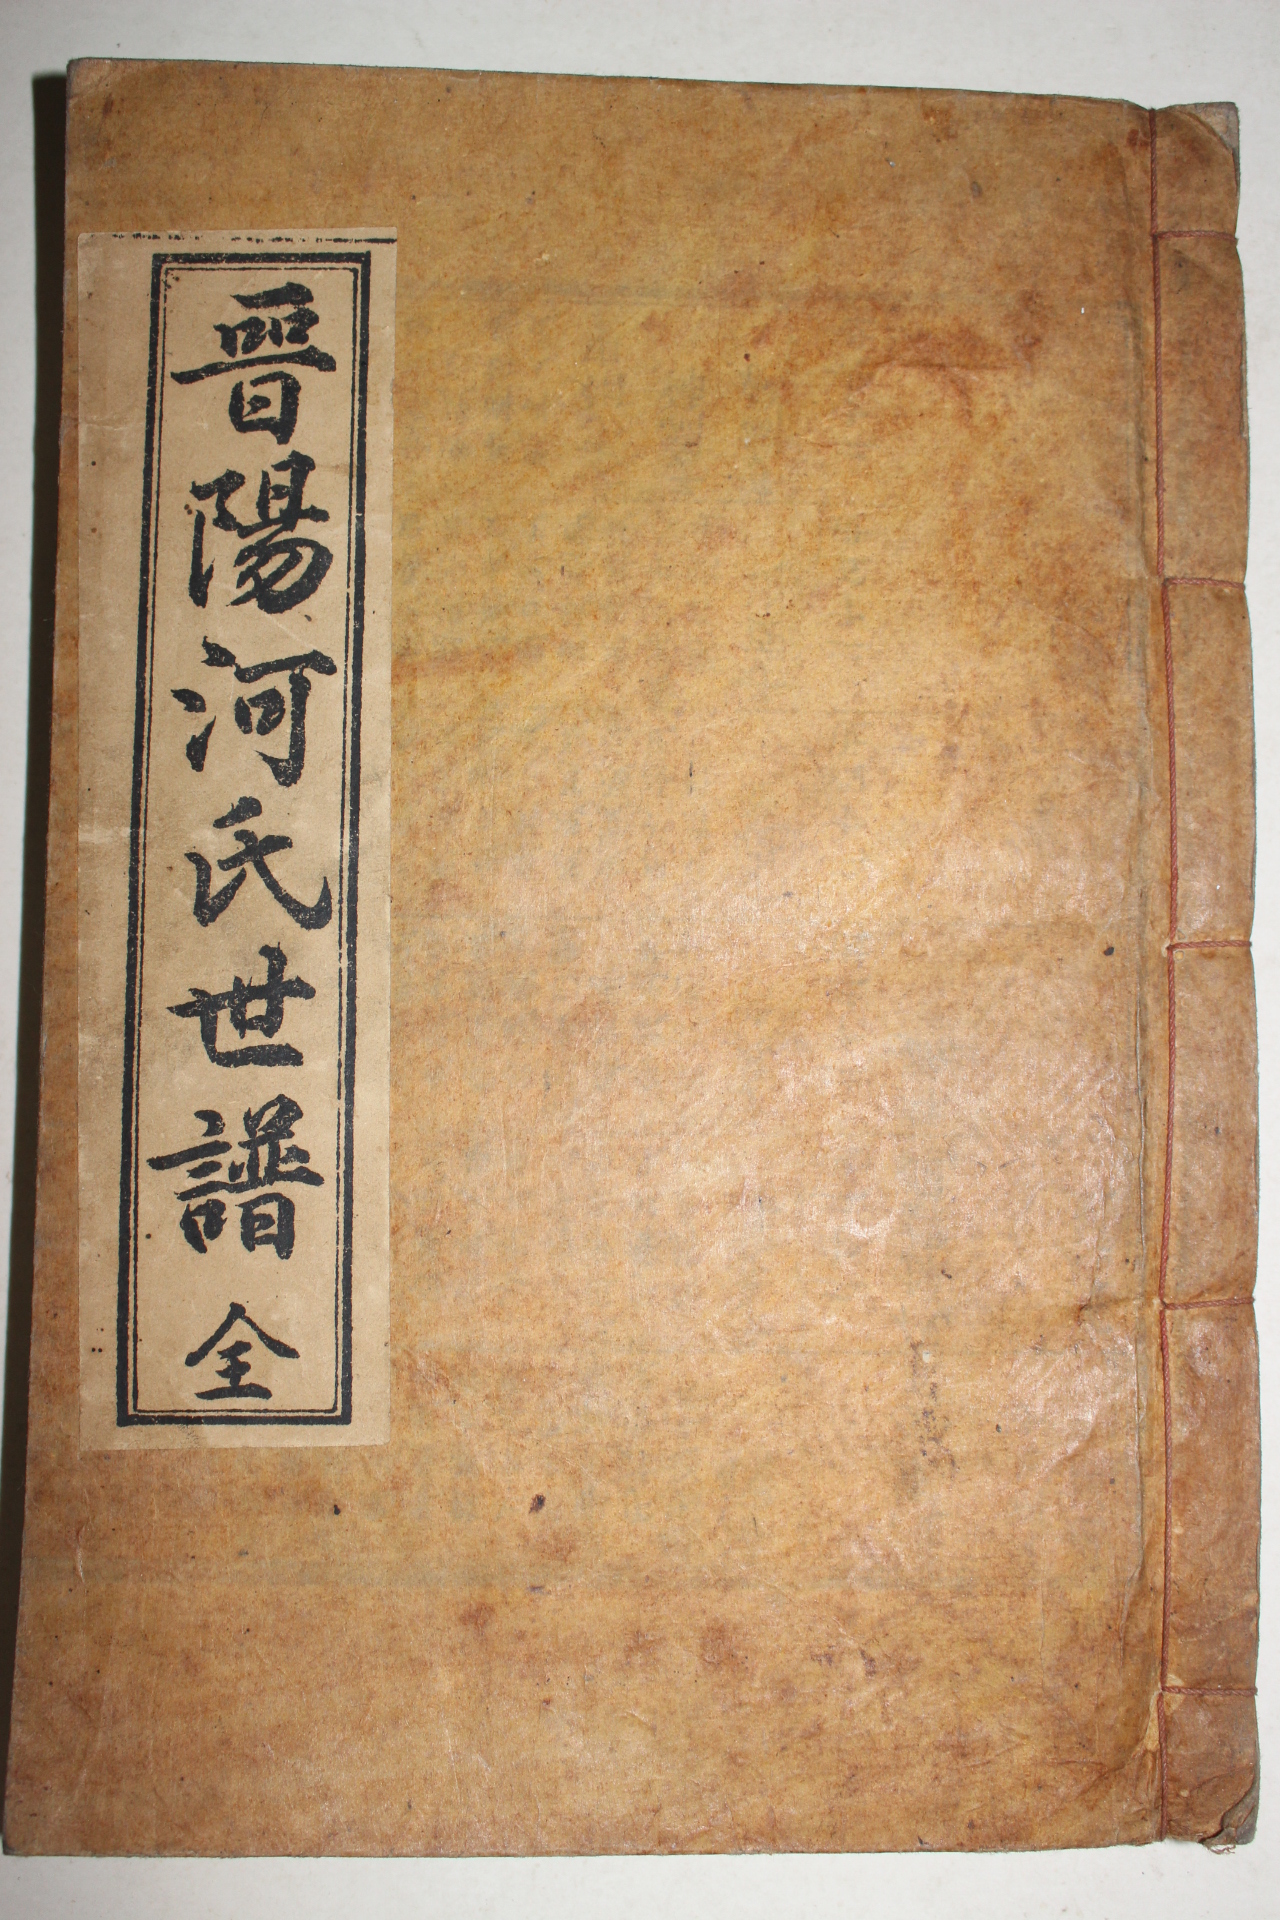 晉陽河氏世譜 全